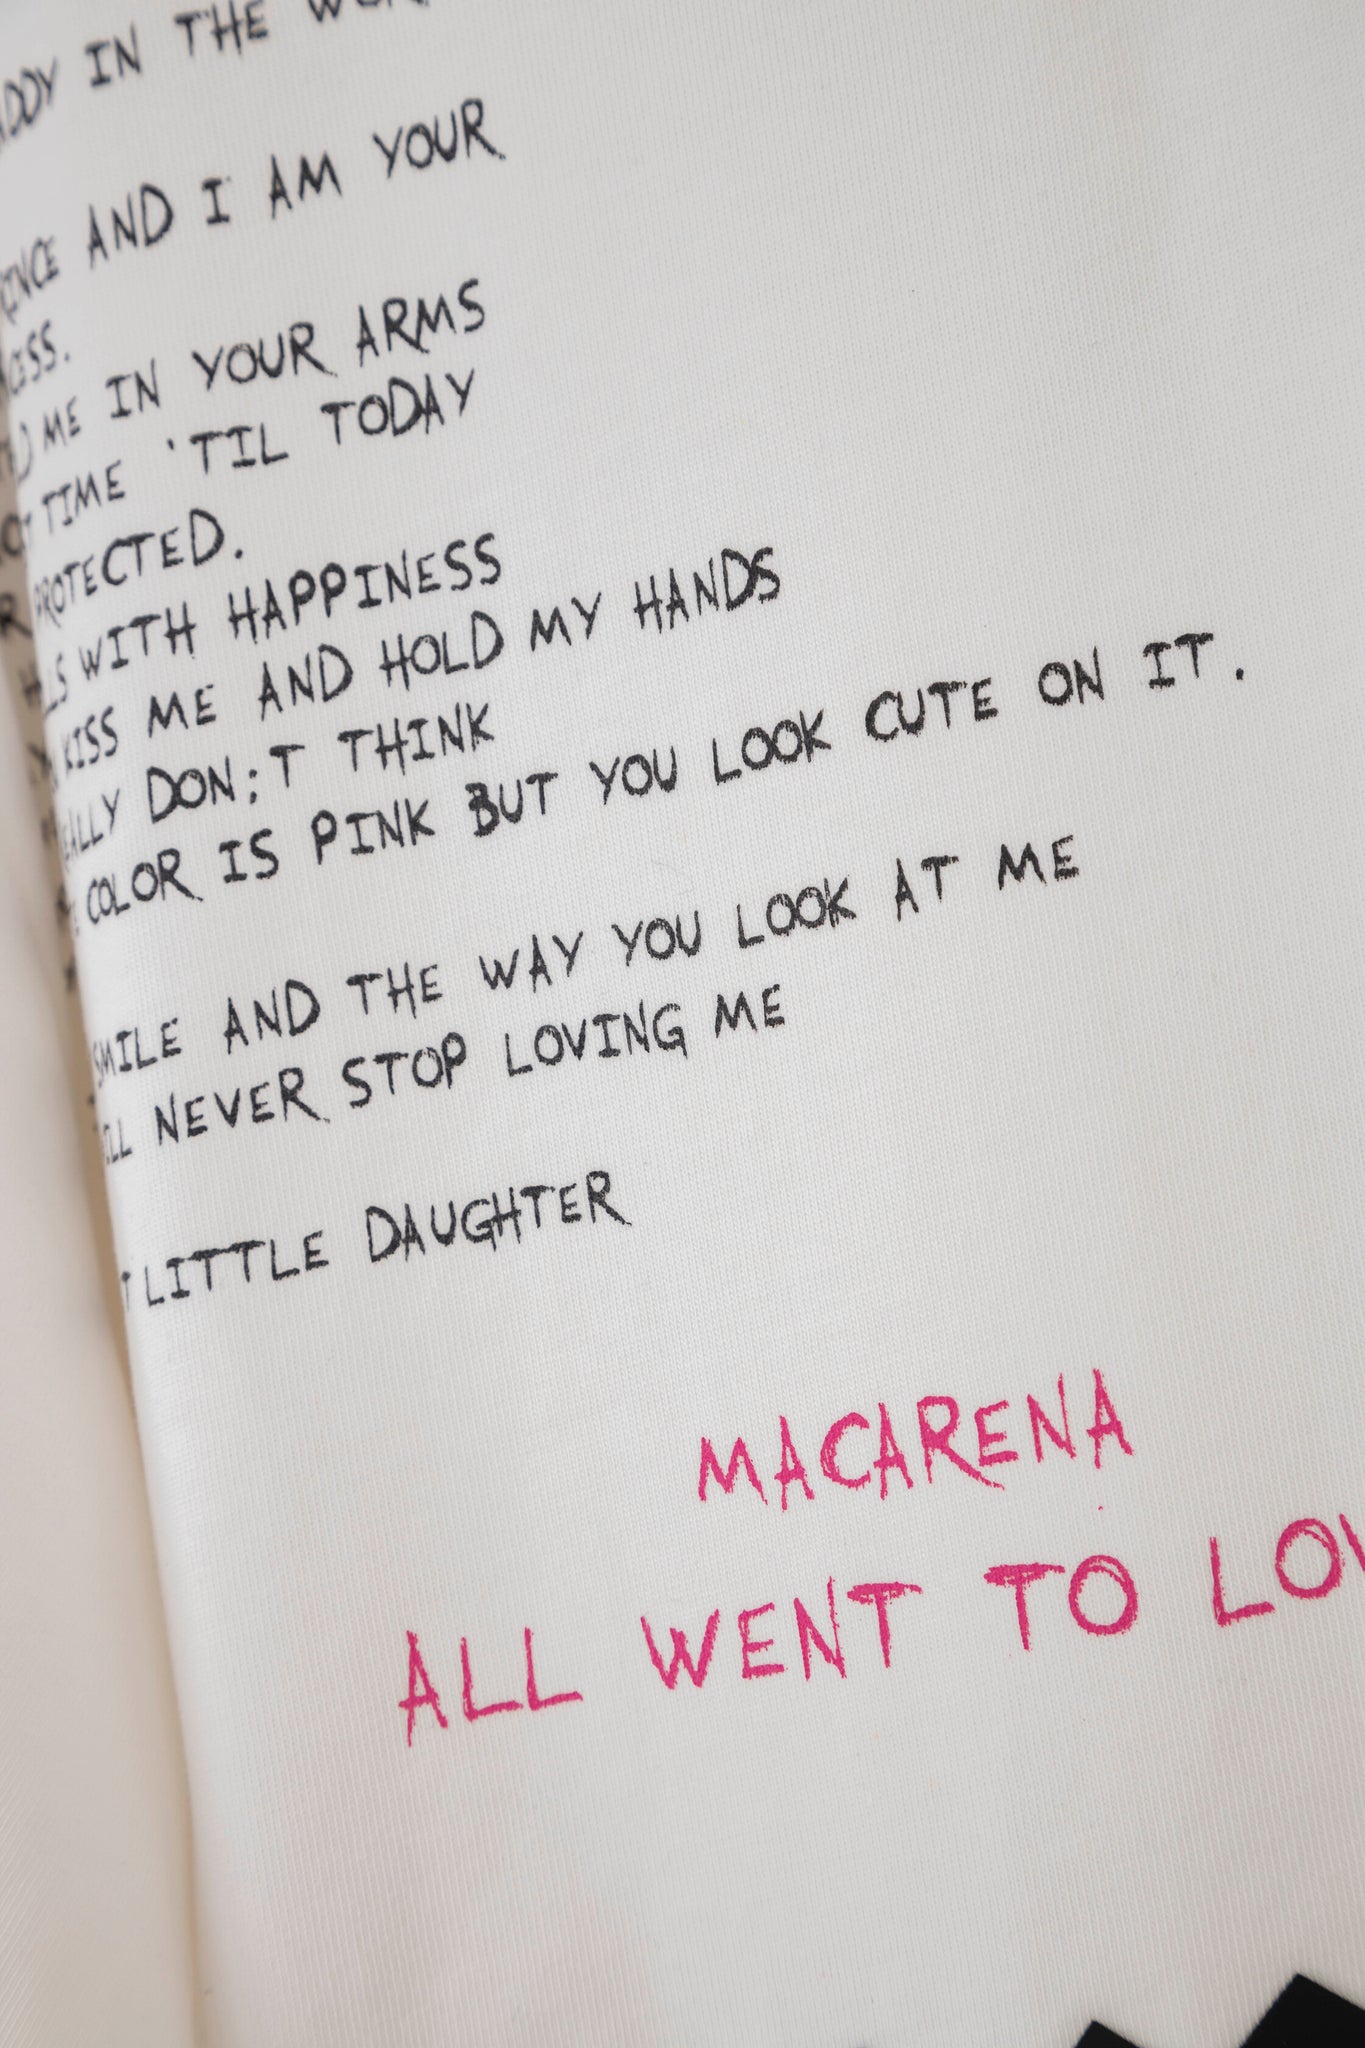 IN THE
AND I AM YOUR
ME IN YOUR ARMS
TIME 'TIL TODAY
PROTECTED.
WITH HAPPINESS
KISS ME AND HOLD MY HANDS
DON;T THINK
COLOR IS PINK BUT YOU LOOK CUTE ON IT.
SMILE AND THE WAY YOU LOOK AT ME
NEVER STOP LOVING ME
LITTLE DAUGHTER
MACARENA
ALL WENT TO